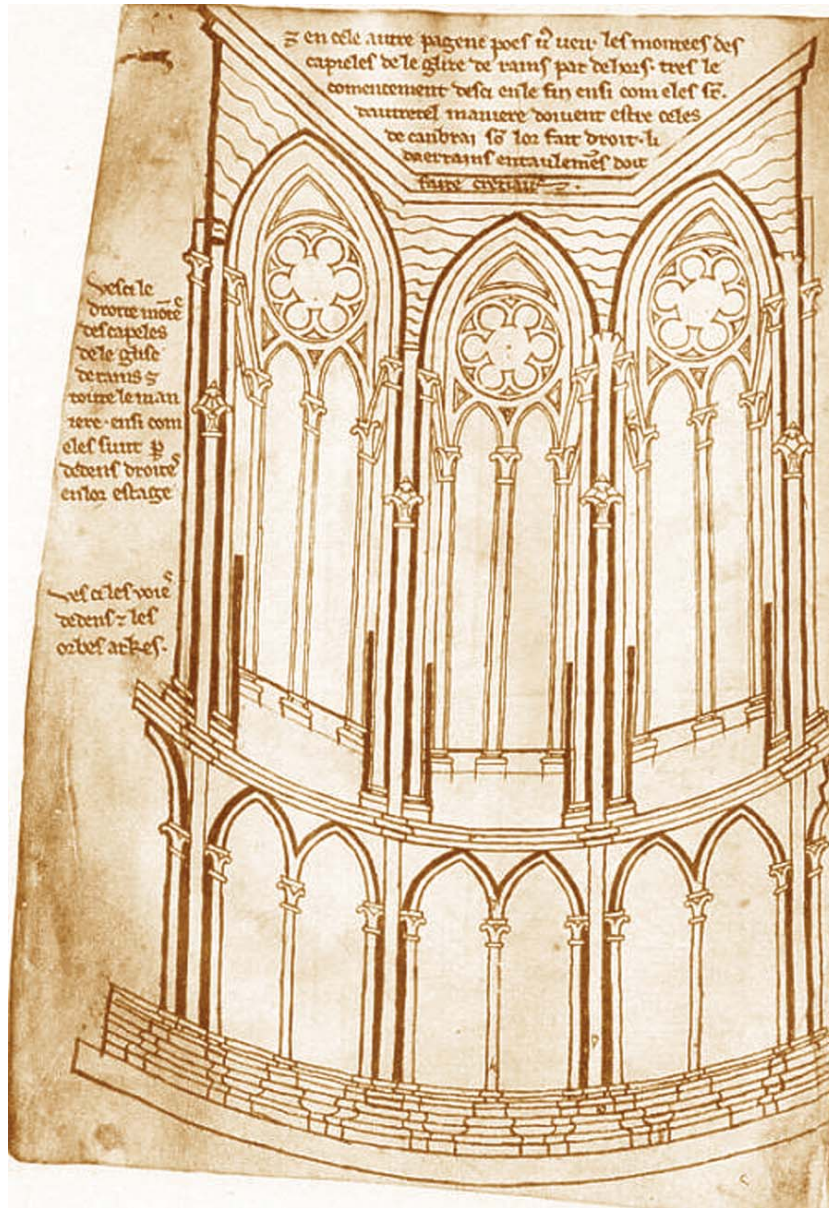 ⁊ en cele autre pagene poes vͦ veir les montees des
capieles de le glize de rains par dehors. tres le
comencement desci en le fin ensi com eles sͦt.
dautretel maniere doivent estre celes
de canbrai sͦ lor fait droit. li
daerrains entaulemēs doit
faire cretiaus.
Vesci le
droite mōtee
des capeles
de le glise
de rains ⁊
toute le man
iere. ensi com
eles sunt p̲
dedens droites
en lor estage
Ves ci les voies
dedens ⁊ les
orbes arkes.